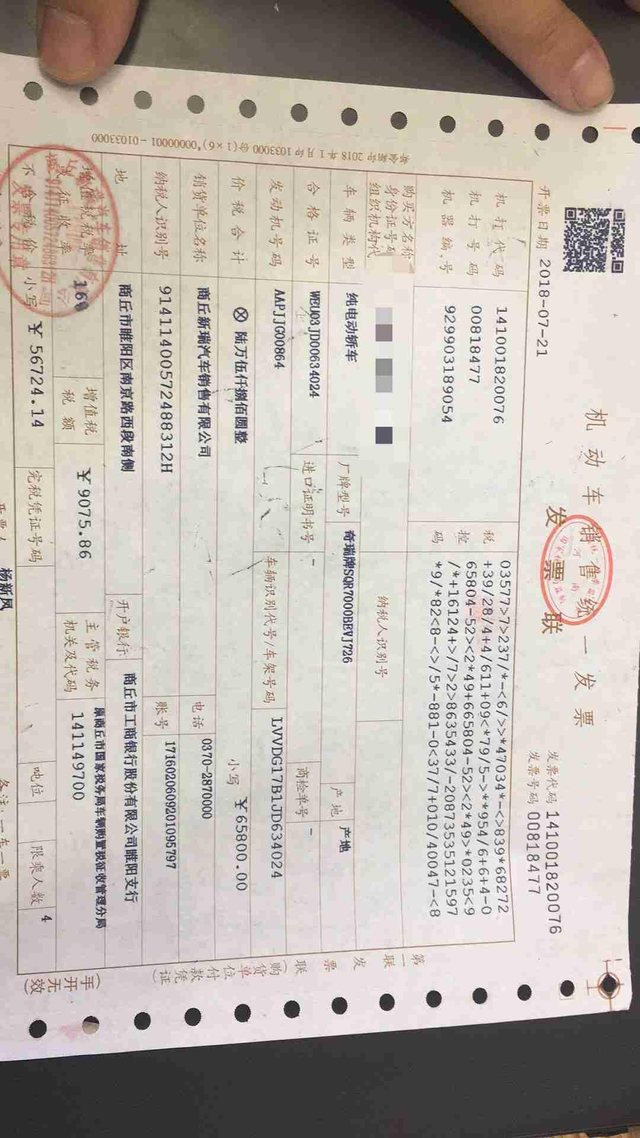 机动车销售统一发票
发票联
发票代码 141001820076
发票号码 00818477
开票日期 2018-07-21
机打代码 141001820076
机打号码 00818477
机器编号 929903189054
税控码
03577>7>237/*-<6/>>*47034*-<>839*68272
+39/28/4+4/611+09<*79/5->**954/6+6+4-0
65804-52><2*49+665804-52><2*49>*0235<9
/*+16124+>/7>2>8635433/-2087353512159​7
*9/*82<8-<>/5*-881-0<37/7+010/40047-<8
购买方名称
身份证号码/
组织机构代
纳税人识别号
车辆类型 纯电动轿车 厂牌型号 奇瑞牌SQR7000BEVJ726 产地 产地
合格证号 WEU03JD00634024 进口证明书号 - 商检单号 -
发动机号码 AAPJJG00864 车辆识别代号/车架号码 LVVDG17B1JD634024
价税合计 ⊗ 陆万伍仟捌佰圆整 小写 ￥65800.00
销货单位名称 商丘新瑞汽车销售有限公司 电话 0370-2870000
纳税人识别号 91411400572488312H 账号 1716020609201095797
地址 商丘市睢阳区南京路西段南侧 开户银行 商丘市工商银行股份有限公司睢阳支行
增值税税率或征收率 16% 增值税税额 ￥9075.86 主管税务机关及代码 原商丘市国家税务局车辆购置税征收管理分局
141149700
不含税价 小写 ￥56724.14 完税凭证号码 吨位 限乘人数 4
开票人 杨新凤 备注:一车一票
第一联 发票联(购货单位付款凭证)
(手开无效)
2018年1月印1033000份(1×6)*00000001-01033000